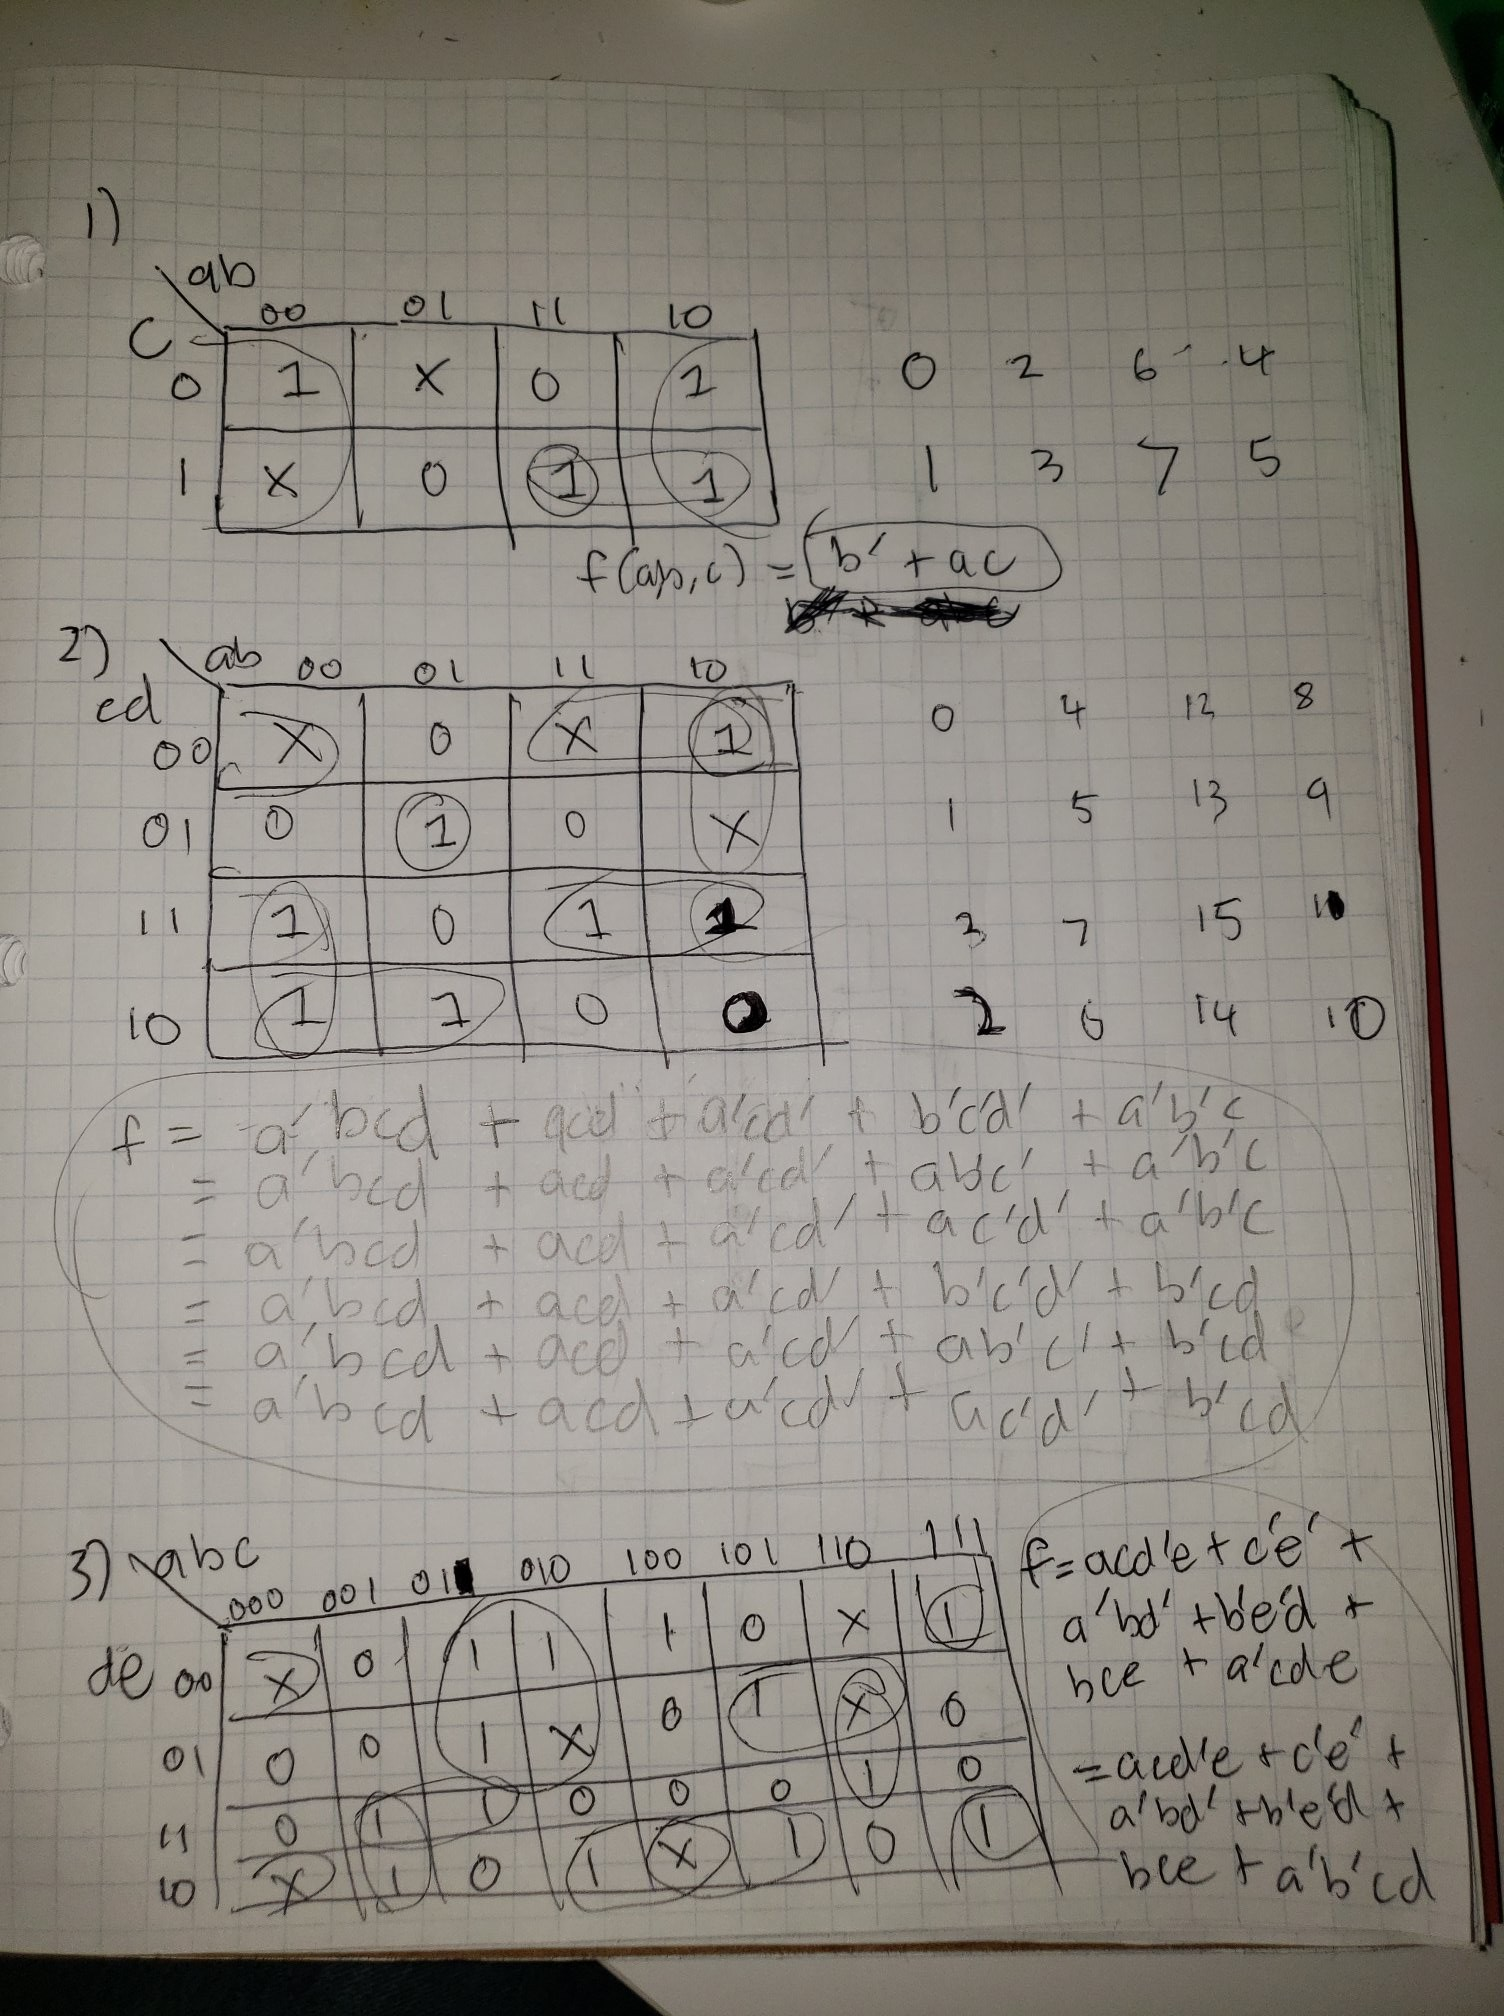 1)
ab
00 01 11 10
C
0 1 X 0 1 0 2 6 4
1 X 0 1 1 1 3 7 5
f(a,b,c) = b' + ac
2) ab 00 01 11 10
cd
00 X 0 X 1 0 4 12 8
01 0 1 0 X 1 5 13 9
11 1 0 1 1 3 7 15 11
10 1 1 0 0 2 6 14 10
f = a'bcd + acd + a'cd' + b'c'd' + a'b'c
= a'bcd + acd + a'cd' + ab'c' + a'b'c
= a'bcd + acd + a'cd' + ac'd' + a'b'c
= a'bcd + acd + a'cd' + b'c'd' + b'cd
= a'bcd + acd + a'cd' + ab'c' + b'cd
= a'bcd + acd + a'cd' + ac'd' + b'cd
3) abc
000 001 011 010 100 101 110 111
de 00 X 0 1 1 1 0 X 1
01 0 0 1 X 0 1 X 0
11 0 1 1 0 0 0 1 0
10 X 1 0 1 X 1 0 1
f = acd'e + c'e' +
a'bd' + b'e'd +
bce + a'cde
= acd'e + c'e' +
a'bd' + b'e'd +
bce + a'b'cd